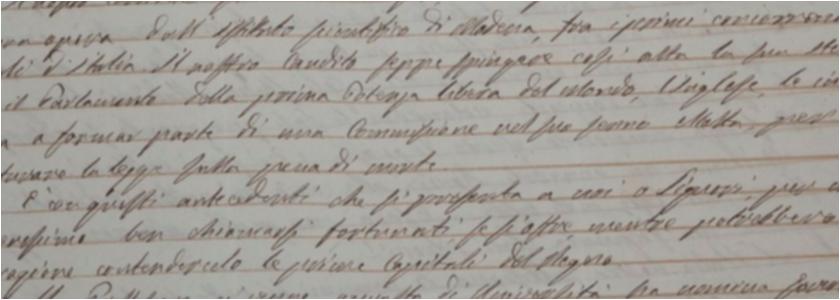 opera dall'Istituto scientifico di Modena, fra i primi concorrenti
d'Italia. Il nostro Candido seppe spingere così alta la sua
il Parlamento della prima Potenza libera del Mondo, l'Inglese, lo
a formar parte di una Commissione nel suo seno eletta, per
la legge sulla pena di morte.
È con questi antecedenti che si presenta a noi o Signori, per
ben chiamarsi fortunati se s'offre mentre potrebbero
ragione contendercelo le prime Capitali del Regno.
di Università ha nomina